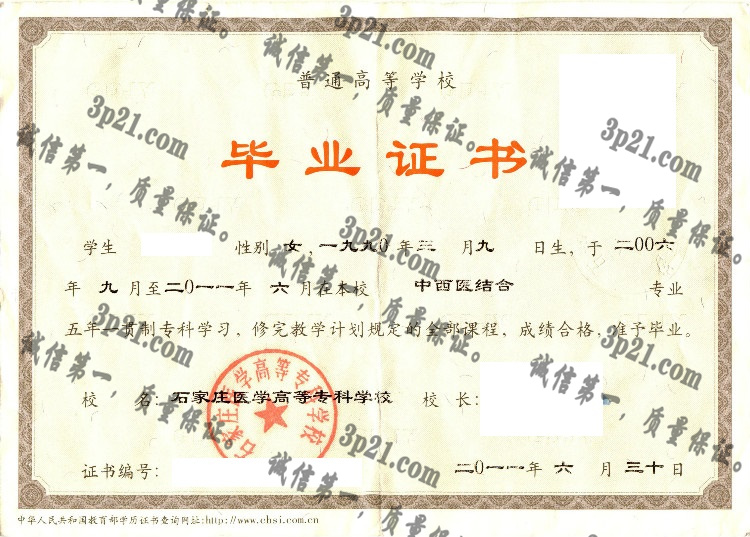 普通高等学校
毕业证书
学生 性别 女，一九九〇年三月九日生，于二〇〇六
年九月至二〇一一年六月在本校 中西医结合 专业
五年一贯制专科学习，修完教学计划规定的全部课程，成绩合格，准予毕业。
校 名：石家庄医学高等专科学校 校 长：
石家庄医学高等专科学校
证书编号： 二〇一一年六月三十日
中华人民共和国教育部学历证书查询网址:http://www.chsi.com.cn
3p21.com
诚信第一，质量保证。
3p21.com
诚信第一，质量保证。
3p21.com
诚信第一，质量保证。
3p21.com
诚信第一，质量保证。
3p21.com
诚信第一，质量保证。
3p21.com
诚信第一，质量保证。
3p21.com
诚信第一，质量保证。
3p21.com
诚信第一，质量保证。